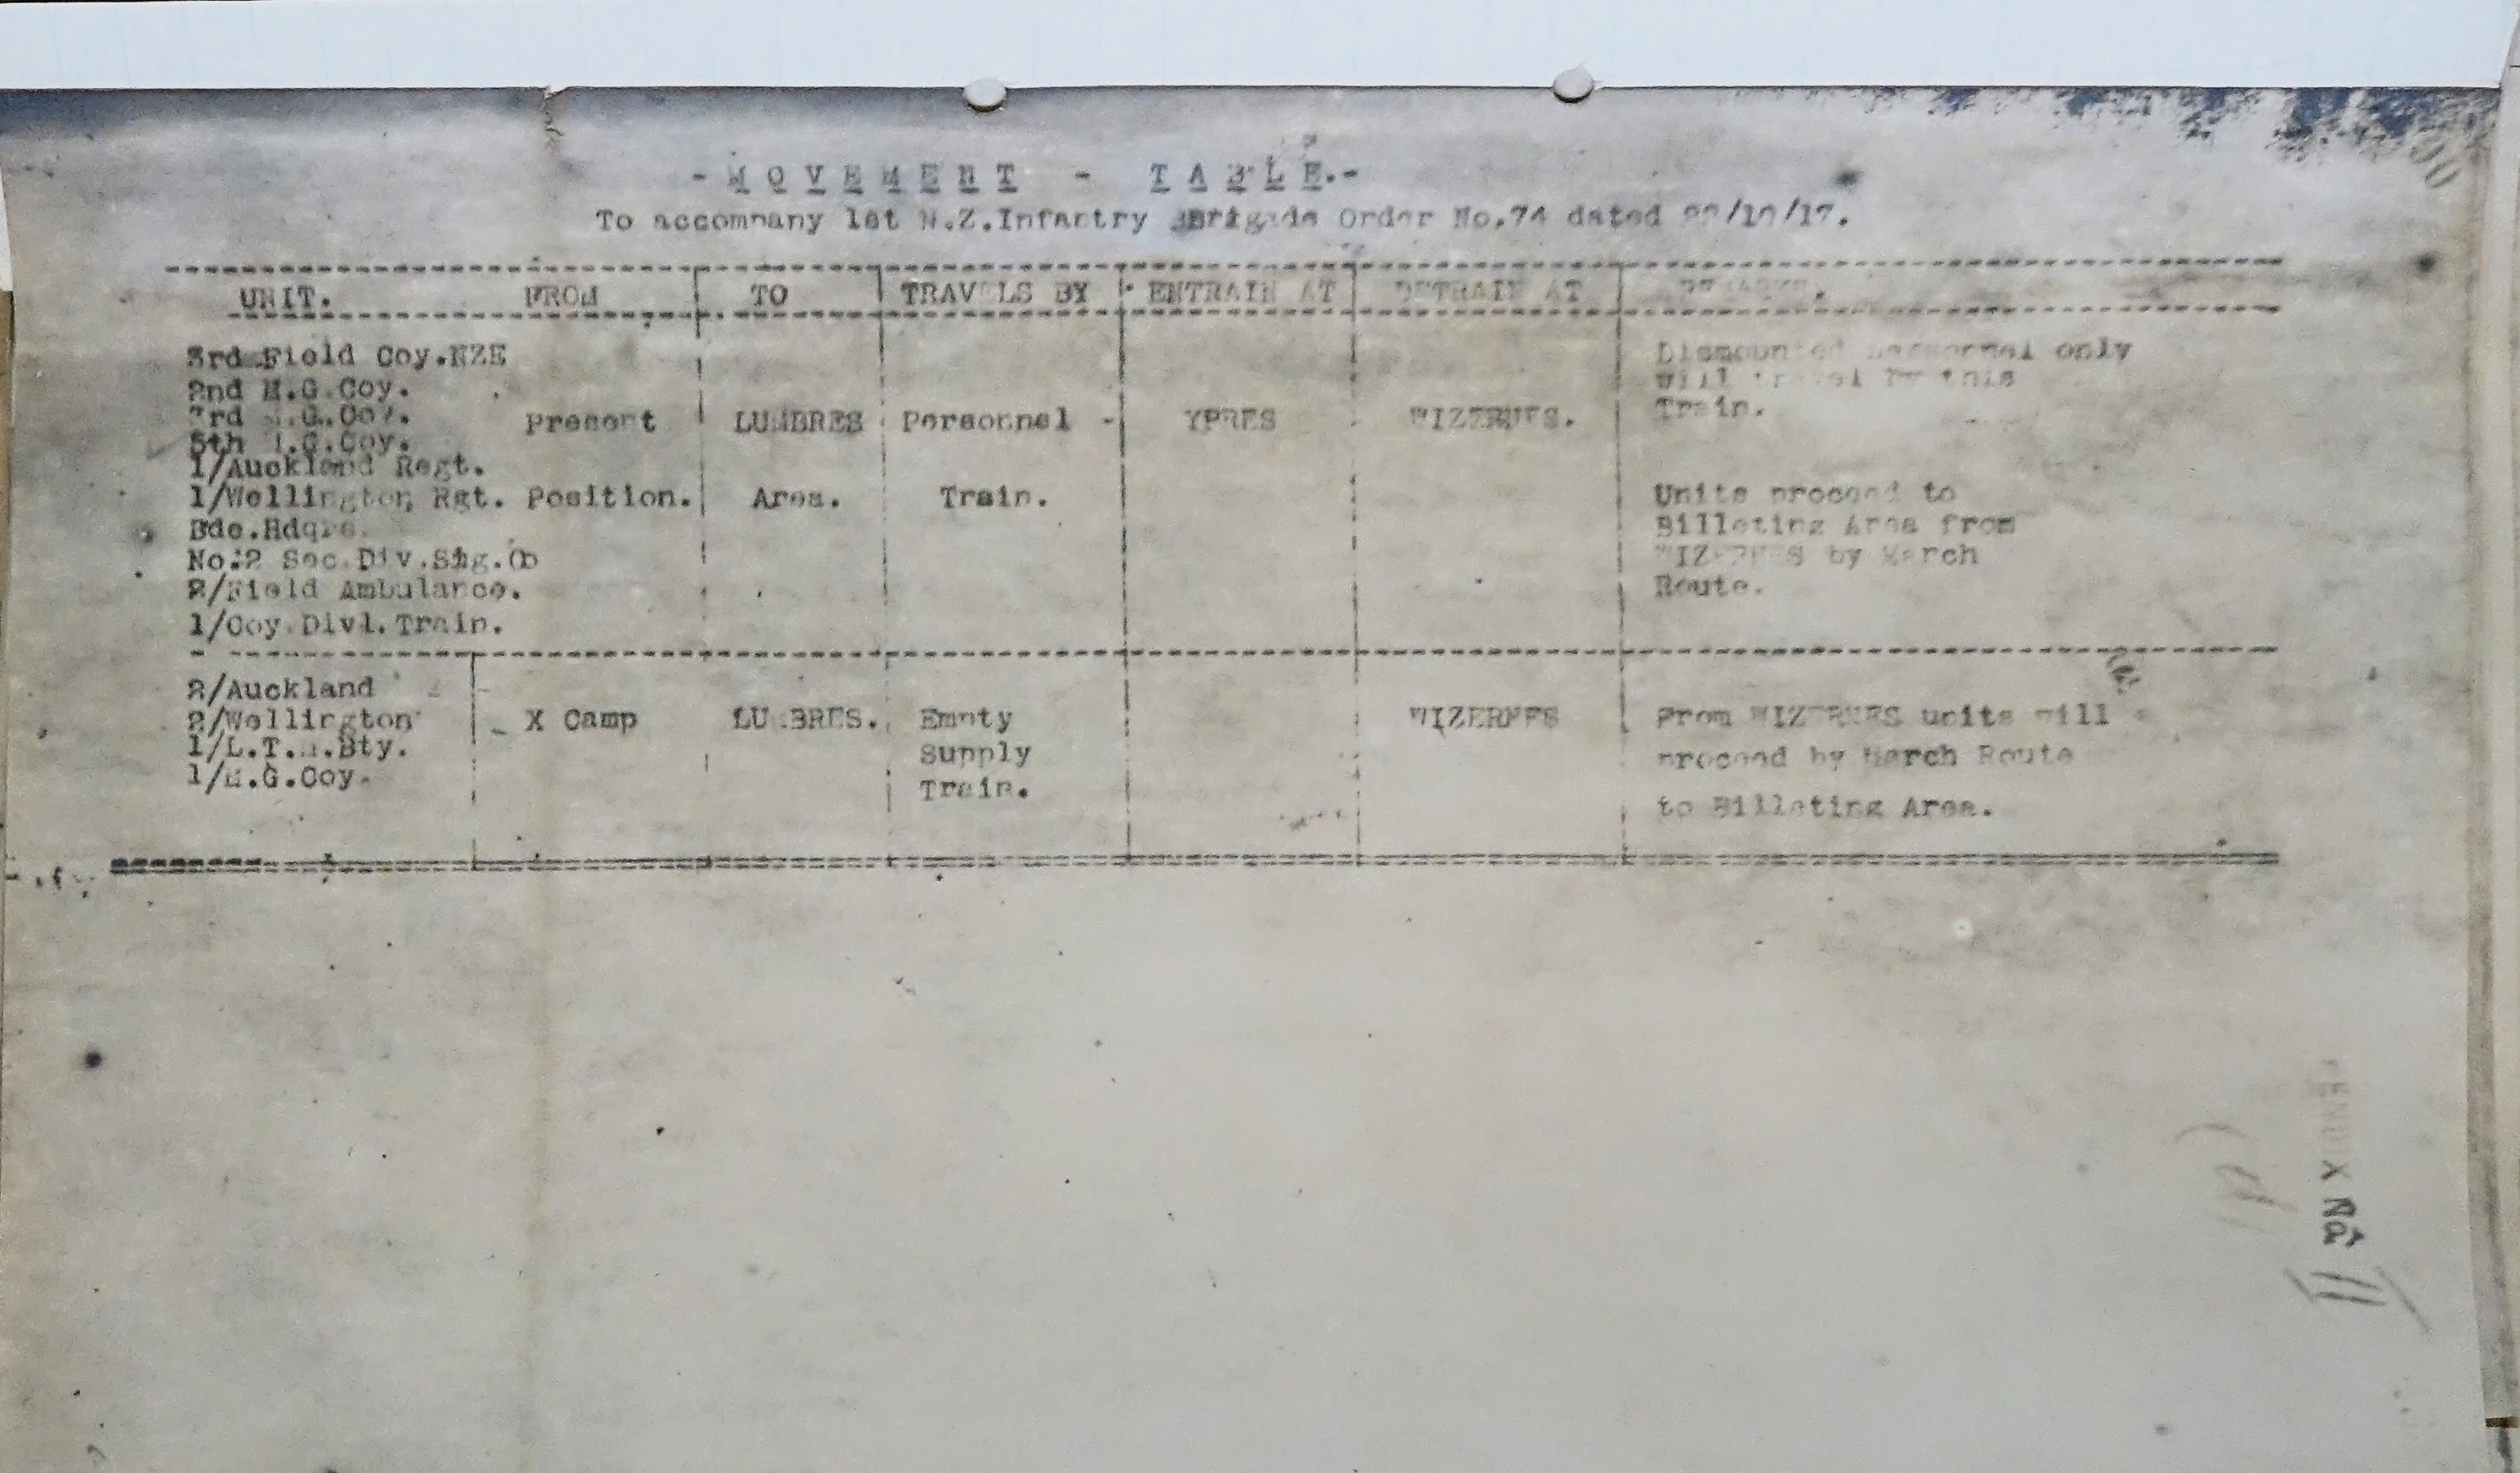 - M O V E M E N T - T A B L E.-
To accompany 1st N.Z.Infantry Brigade Order No.74 dated /10/17.
UNIT. FROM TO TRAVELS BY ENTRAIN AT DETRAIN AT REMARKS.
3rd Field Coy.NZE
2nd M.G.Coy.
3rd M.G.Coy.
5th M.G.Coy.
1/Auckland Regt.
1/Wellington Rgt.
Bde.Hdqrs.
No.2 Sec.Div.Sig.Co
2/Field Ambulance.
1/Coy.Divl.Train.
Present
Position.
LUMBRES
Area.
Personnel -
Train.
YPRES
WIZERNES.
Dismounted personnel only
will travel by this
Train.
Units proceed to
Billeting Area from
WIZERNES by March
Route.
2/Auckland
2/Wellington
1/L.T.M.Bty.
1/M.G.Coy.
X Camp
LUMBRES.
Empty
Supply
Train.
WIZERNES
From WIZERNES units will
proceed by March Route
to Billeting Area.
APPENDIX No II